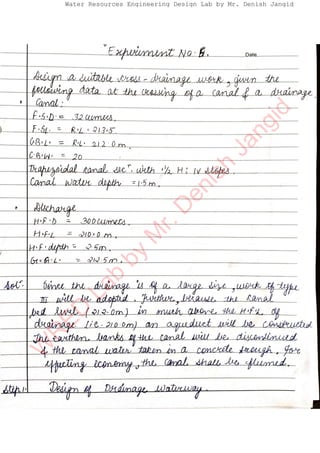 Water Resources Engineering Design Lab by Mr. Denish Jangid
"Experiment NO. 5.
Date
Design a suitable cross-drainage work, given the
following data at the crossing of a canal & a drainage
Canal:
F.S.D = 32 cumecs.
F.S.L = R.L. 213.5
CB.L. = R.L. 212.0m.
C.B.W. = 20
Trapezoidal canal secⁿ. with 1½ H : 1V slopes.
Canal water depth = 1.5m.
Discharge
H.F.D = 300cumets.
H.F.L = 210.0 m.
H.F. depth = 2.5m.
G.L = 212.5m.
Solⁿ. Since the drainage is of a large size, work of type
III will be adopted. Further, because the canal
bed level (212.0m) in much above the H.F.L of
drainage (i.e. 210.0m) an aqueduct will be constructed
The earthen banks of the canal will be discontinued
& the canal water taken in a concrete trough, for
effecting economy, the canal shall be flumed.
Step 1:- Design of Drainage waterway.
Water Lab by Mr. Denish Jangid